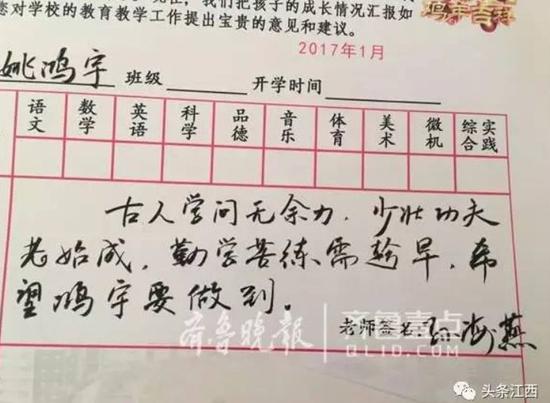 现在，我们把孩子的成长情况汇报如
您对学校的教育教学工作提出宝贵的意见和建议。
鸡年吉祥
2017年1月
姚鸿宇 班级 开学时间
语文 数学 英语 科学 品德 音乐 体育 美术 微机 综合实践
古人学问无余力，少壮功夫
老始成，勤学苦练需趁早，希
望鸿宇要做到。
老师签名 孙海燕
齐鲁晚报 齐鲁壹点
QLYD.COM
头条江西